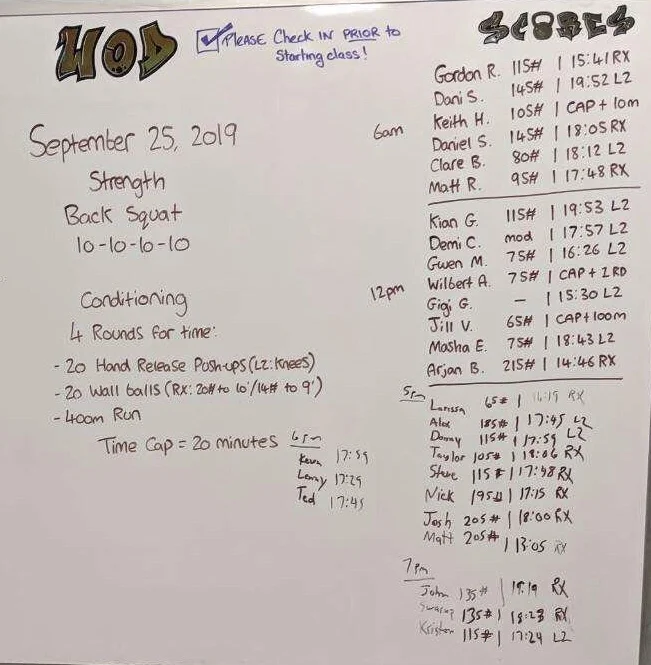 WOD
PLEASE CHECK IN PRIOR to
Starting class!
September 25, 2019
Strength
Back Squat
10-10-10-10
Conditioning
4 Rounds for time:
- 20 Hand Release Push-ups (L2: Knees)
- 20 Wall balls (RX: 20# to 10'/14# to 9')
- 400m Run
Time Cap = 20 minutes
6pm
Kevin 17:59
Lenny 17:29
Ted 17:45
SCORES
6am
Gordon R. 115# | 15:41 RX
Dani S. 145# | 19:52 L2
Keith H. 105# | CAP + 10m
Daniel S. 145# | 18:05 RX
Clare B. 80# | 18:12 L2
Matt R. 95# | 17:48 RX
12pm
Kian G. 115# | 19:53 L2
Demi C. mod | 17:57 L2
Gwen M. 75# | 16:26 L2
Wilbert A. 75# | CAP + 1 RD
Gigi G. – | 15:30 L2
Jill V. 65# | CAP + 100m
Masha E. 75# | 18:43 L2
Arjan B. 215# | 14:46 RX
5pm
Larissa 65# | RX
Alex 185# | 17:45 L2
Danny 115# | 17:59 L2
Taylor 105# | 18:06 RX
Steve 115# | 17:48 RX
Nick 195# | 17:15 RX
Josh 205# | 18:00 RX
Matt 205# | 13:05 RX
7pm
John 135# | 19:19 RX
135# | 18:23 RX
Kristen 115# | 17:24 L2